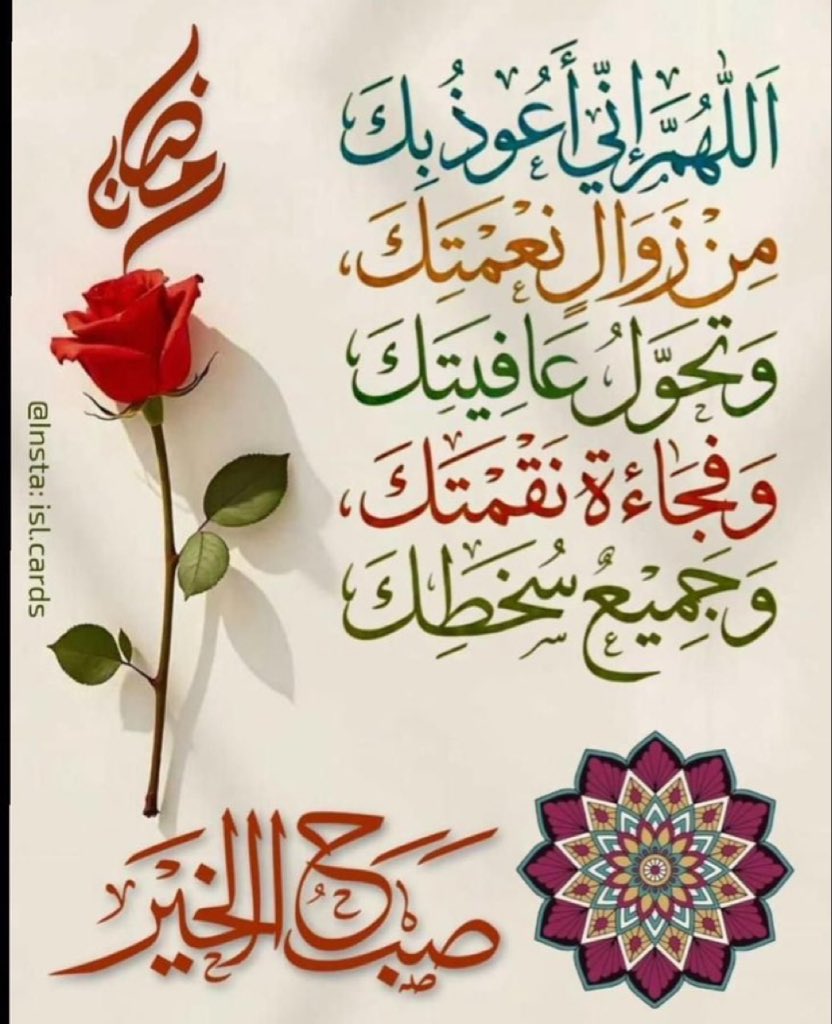 رمضان
اَللّٰهُمَّ إِنِّي أَعُوذُ بِكَ
مِنْ زَوَالِ نِعْمَتِكَ،
وَتَحَوَّلُ عَافِيَتِكَ
وَفُجَاءَةِ نَقْمَتِكَ،
وَجَمِيعُ سُخَطِكَ
@Insta: isl.cards
صَبَاحُ الخَيْر